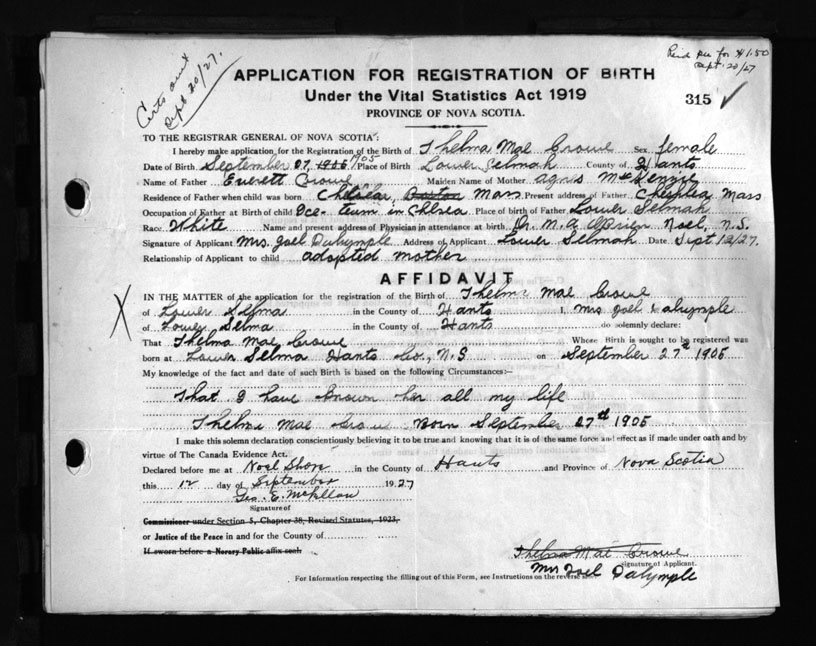 Certs sent
Sept 20/27.
for $1.50
Sept. 20/27
APPLICATION FOR REGISTRATION OF BIRTH
Under the Vital Statistics Act 1919
315 ✓
PROVINCE OF NOVA SCOTIA.
TO THE REGISTRAR GENERAL OF NOVA SCOTIA:
I hereby make application for the Registration of the Birth of Thelma Mae Crowe Sex female
Date of Birth September 27, 1906 1905 Place of Birth Lower Selmah County of Hants
Name of Father Everett Crowe Maiden Name of Mother Agnis McKenzie
Residence of Father when child was born Chelsea, Boston Mass Present address of Father Mass
Occupation of Father at Birth of child Ice-team in Chlsea Place of birth of Father Lower Selmah
Race White Name and present address of Physician in attendance at birth, Dr. M. A. O'Brien Noel, N.S.
Signature of Applicant Mrs. Joel Dalymple Address of Applicant Lower Selmah Date Sept 12/27.
Relationship of Applicant to child adopted mother
AFFIDAVIT
IN THE MATTER of the application for the registration of the Birth of Thelma Mae Crowe
of Lower Selma in the County of Hants I, Mrs Joel Dalymple
of Lower Selma in the County of Hants do solemnly declare:
That Thelma Mae Crowe Whose Birth is sought to be registered was
born at Lower Selma Hants Co., N.S on September 27th 1905
My knowledge of the fact and date of such Birth is based on the following Circumstances:—
That I have known her all my life
Thelma Mae Crowe Born September 27th 1905
I make this solemn declaration conscientiously believing it to be true and knowing that it is of the same force and effect as if made under oath and by
virtue of The Canada Evidence Act.
Declared before me at Noel Shore in the County of Hants and Province of Nova Scotia
this 12 day of September 1927
Geo. E. McLellan
Signature of
Commissioner under Section 5, Chapter 38, Revised Statutes, 1923,
or Justice of the Peace in and for the County of
If sworn before a Notary Public affix seal.
Thelma Mae Crowe
Signature of Applicant.
Mrs Joel Dalymple
For Information respecting the filling out of this Form, see Instructions on the reverse